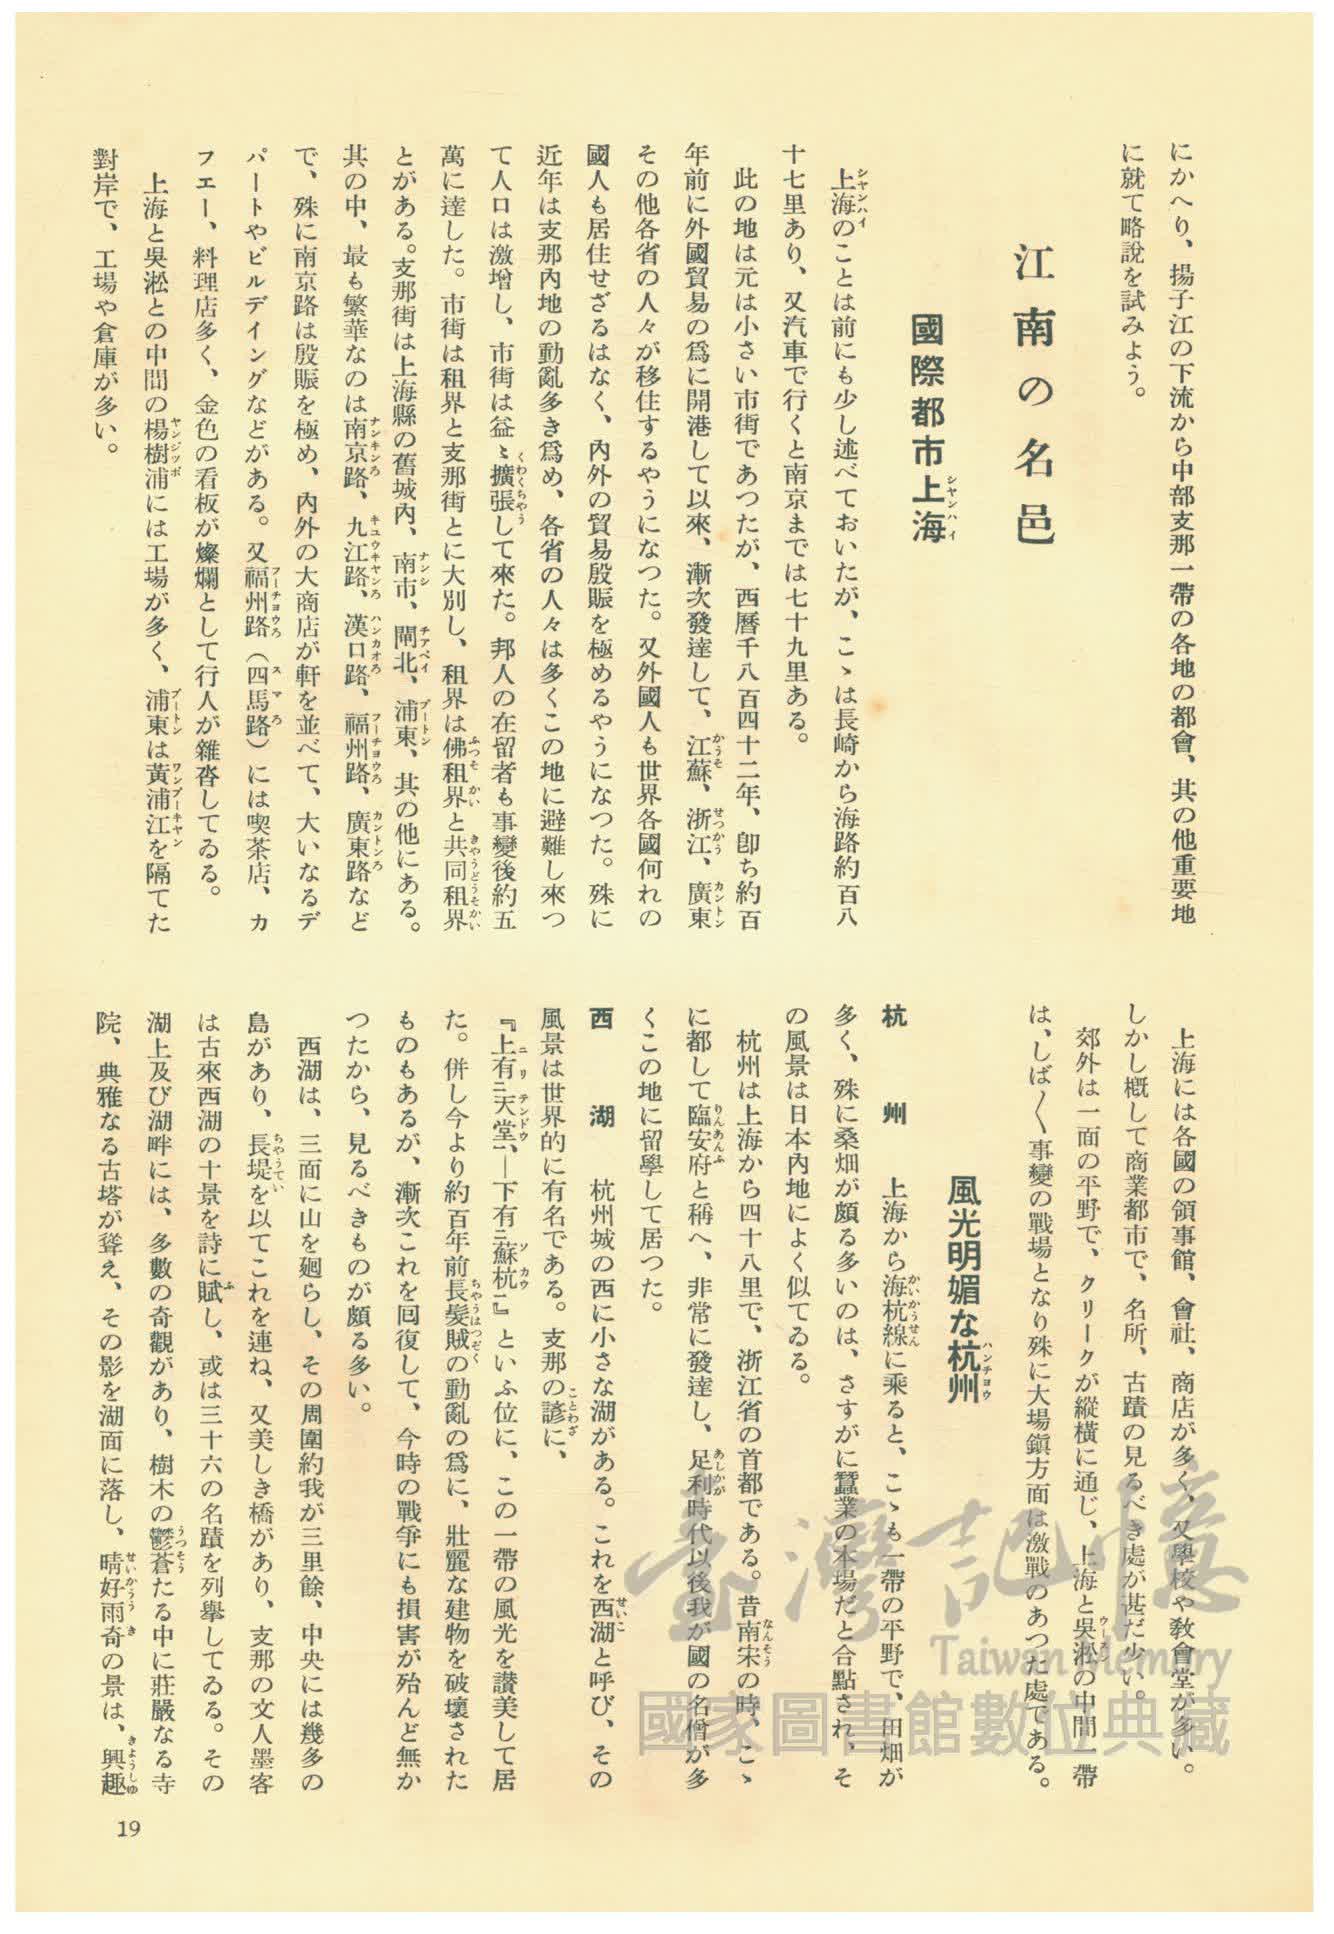 にかへり、揚子江の下流から中部支那一帶の各地の都會、其の他重要地
に就て略說を試みよう。
江南の名邑
國際都市上海
上海のことは前にも少し述べておいたが、こゝは長崎から海路約百八
十七里あり、又汽車で行くと南京までは七十九里ある。
此の地は元は小さい市街であつたが、西曆千八百四十二年、卽ち約百
年前に外國貿易の爲に開港して以來、漸次發達して、江蘇、浙江、廣東
その他各省の人々が移住するやうになつた。又外國人も世界各國何れの
國人も居住せざるはなく、內外の貿易殷賑を極めるやうになつた。殊に
近年は支那內地の動亂多き爲め、各省の人々は多くこの地に避難し來つ
て人口は激增し、市街は益〻擴張して來た。邦人の在留者も事變後約五
萬に達した。市街は租界と支那街とに大別し、租界は佛租界と共同租界
とがある。支那街は上海縣の舊城內、南市、閘北、浦東、其の他にある。
其の中、最も繁華なのは南京路、九江路、漢口路、福州路、廣東路など
で、殊に南京路は殷賑を極め、內外の大商店が軒を並べて、大いなるデ
パートやビルデイングなどがある。又福州路（四馬路）には喫茶店、カ
フエー、料理店多く、金色の看板が燦爛として行人が雜沓してゐる。
上海と吳淞との中間の楊樹浦には工場が多く、浦東は黃浦江を隔てた
對岸で、工場や倉庫が多い。
上海には各國の領事館、會社、商店が多く、又學校や敎會堂が多い。
しかし槪して商業都市で、名所、古蹟の見るべき處が甚だ少い。
郊外は一面の平野で、クリークが縱橫に通じ、上海と吳淞の中間一帶
は、しば〳〵事變の戰場となり殊に大場鎭方面は激戰のあつた處である。
風光明媚な杭州
杭州　上海から海杭線に乘ると、こゝも一帶の平野で、田畑が
多く、殊に桑畑が頗る多いのは、さすがに蠶業の本場だと合點され、そ
の風景は日本內地によく似てゐる。
杭州は上海から四十八里で、浙江省の首都である。昔南宋の時、こゝ
に都して臨安府と稱へ、非常に發達し、足利時代以後我が國の名僧が多
くこの地に留學して居つた。
西湖　杭州城の西に小さな湖がある。これを西湖と呼び、その
風景は世界的に有名である。支那の諺に、
『上有二天堂一、下有二蘇杭一』といふ位に、この一帶の風光を讚美して居
た。併し今より約百年前長髮賊の動亂の爲に、壯麗な建物を破壞された
ものもあるが、漸次これを囘復して、今時の戰爭にも損害が殆んど無か
つたから、見るべきものが頗る多い。
西湖は、三面に山を廻らし、その周圍約我が三里餘、中央には幾多の
島があり、長堤を以てこれを連ね、又美しき橋があり、支那の文人墨客
は古來西湖の十景を詩に賦し、或は三十六の名蹟を列擧してゐる。その
湖上及び湖畔には、多數の奇觀があり、樹木の鬱蒼たる中に莊嚴なる寺
院、典雅なる古塔が聳え、その影を湖面に落し、晴好雨奇の景は、興趣
19
臺灣記憶
Taiwan Memory
國家圖書館數位典藏